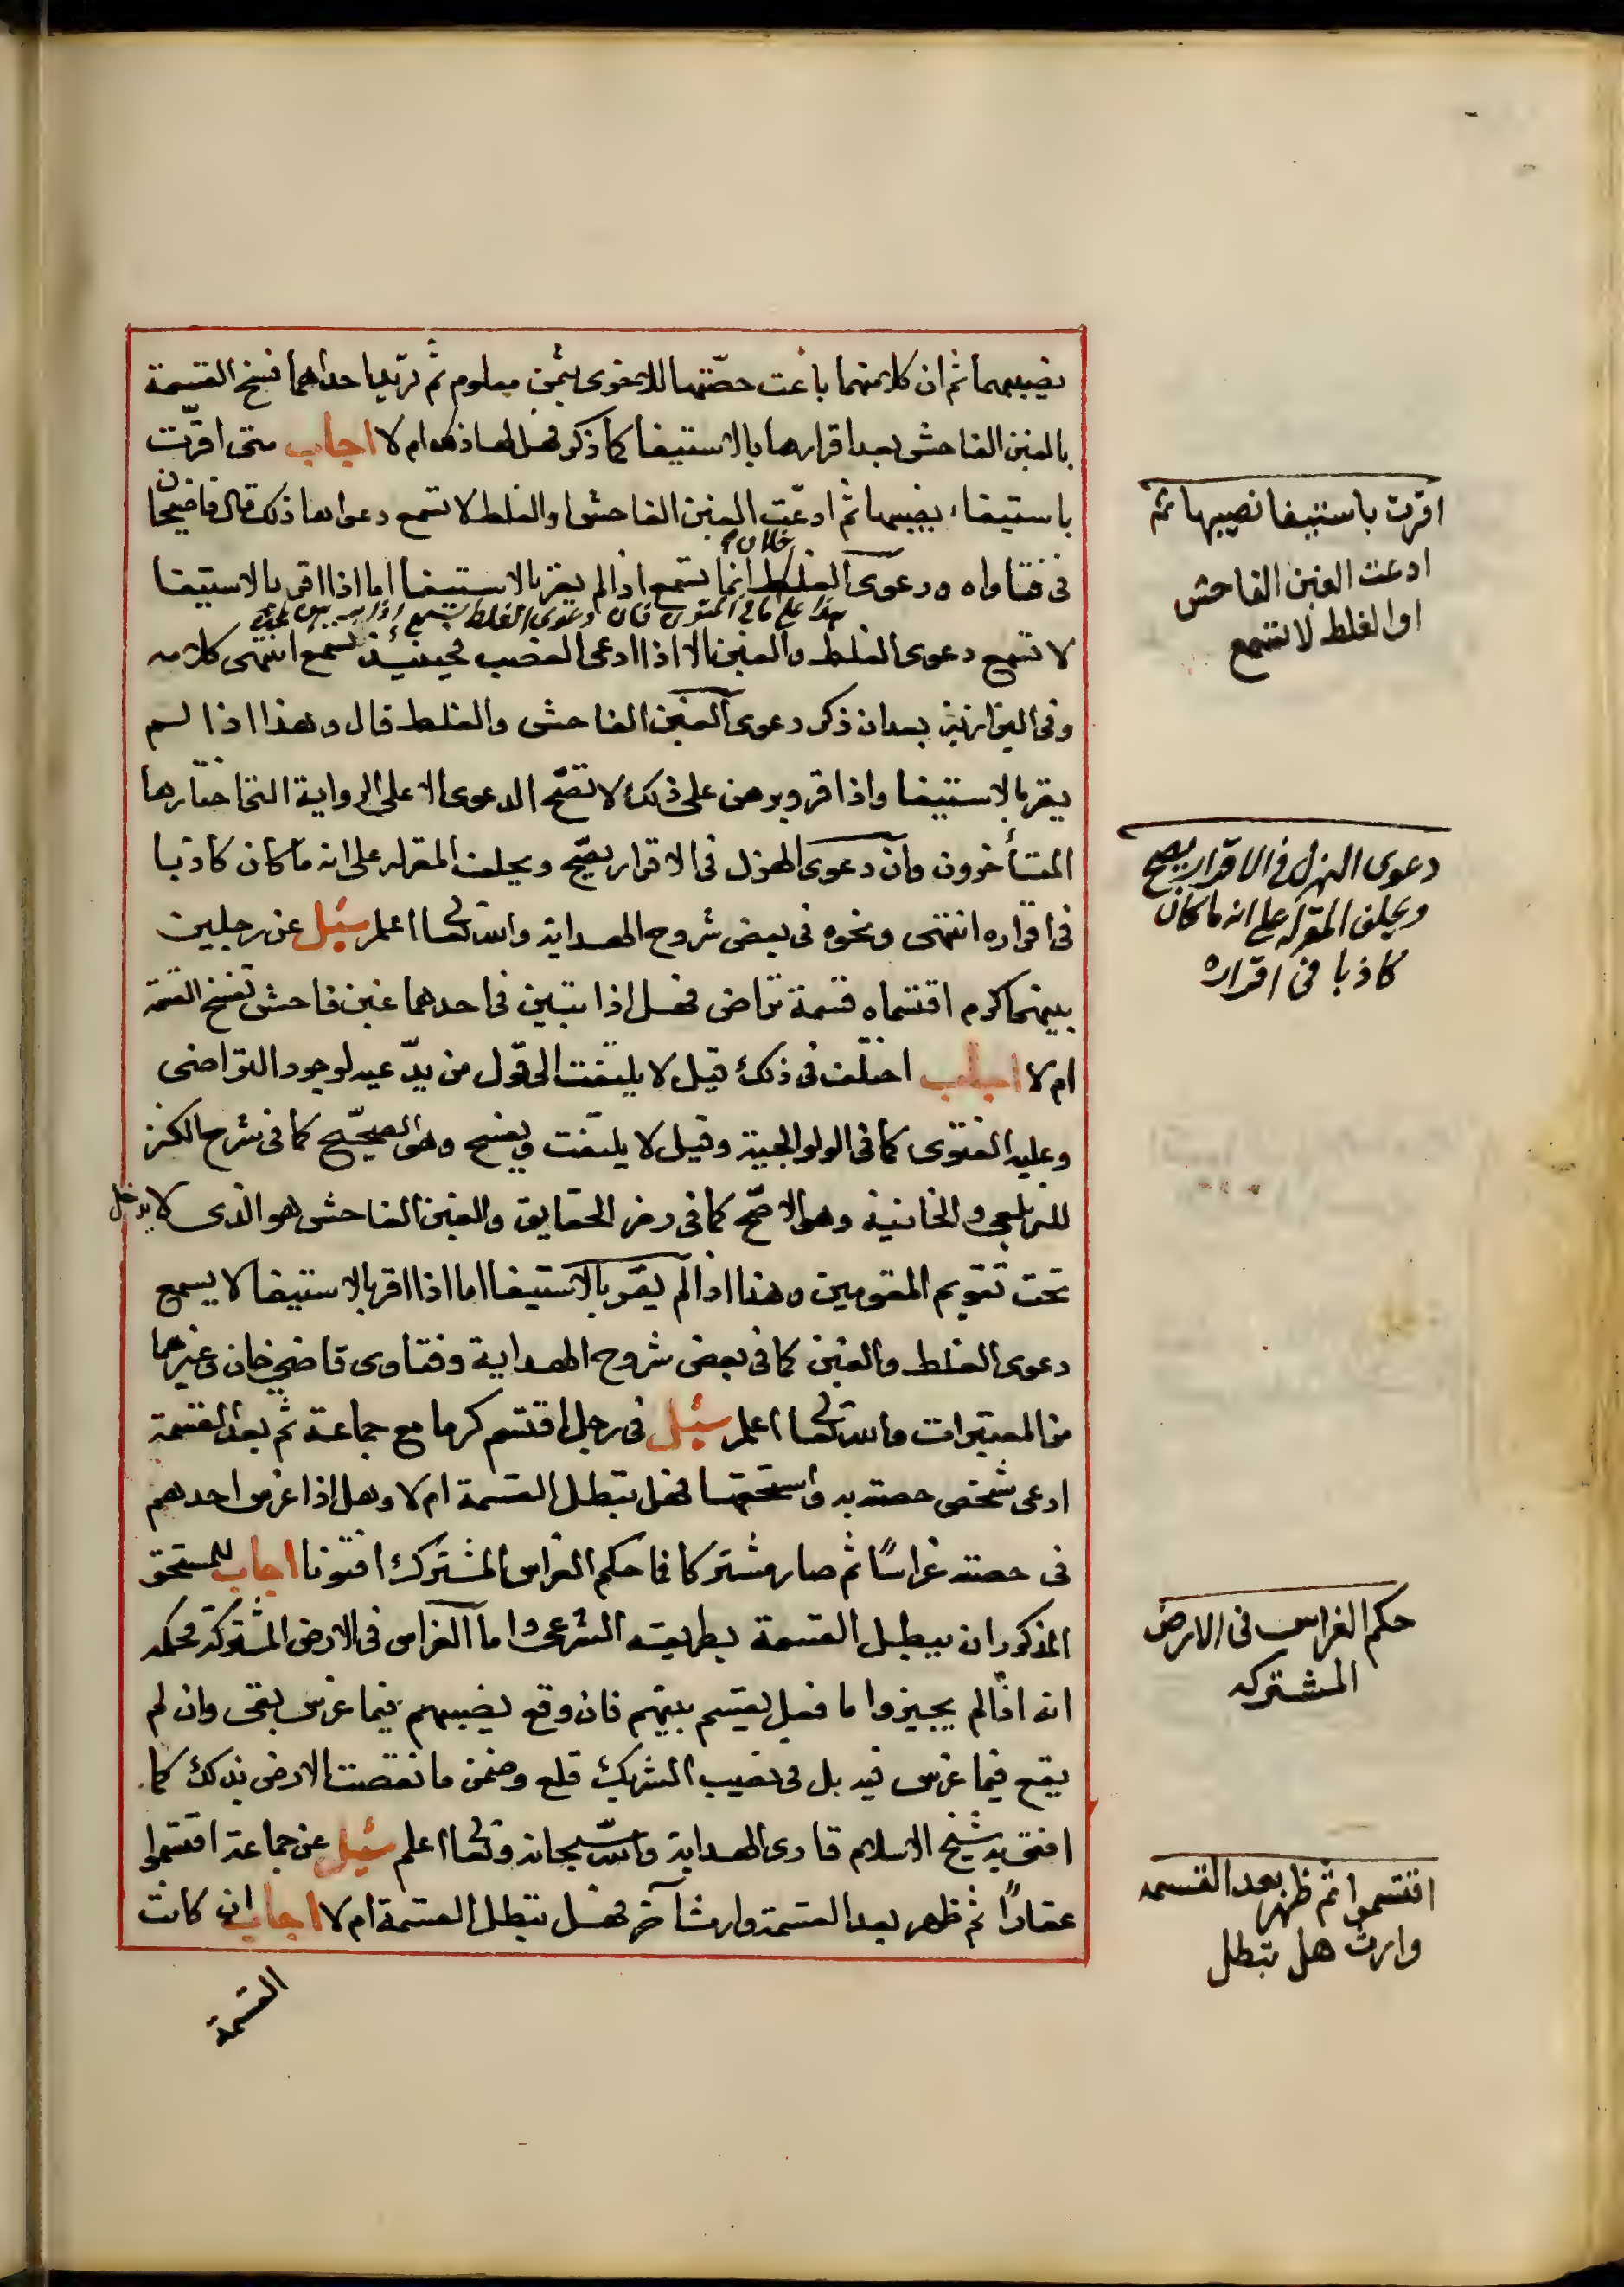 نصيبهما ثم ان كلا منهما باعت حصتها للاخرى بثمن معلوم ثم تريد احداهما فسخ القسمة
بالغبن الفاحش بعد اقرارها بالاستيفا كما ذكر فهل لها ذلك ام لا اجاب متى اقرّت
باستيفاء نصيبها ثم ادعّت الغبن الفاحش او الغلط لا تسمع دعواها ذلك قال قاضيخان
فى فتاواه ودعوى الغلط انما تسمع اذا لم يقر بالاستيفا اما اذا اقر بالاستيفا
هذا على ما فى المتون فان دعوى الغلط تسمع اذا
لا تسمع دعوى الغلط والغبن الا اذا ادعى الغصب فحينئذ تسمع انتهى كلامه
وفى البزازية بعد ان ذكر دعوى الغبن الفاحش والغلط قال وهذا اذا لم
يقر بالاستيفا واذا اقر وبرهن على ذلك لا تصّح الدعوى الا على الرواية التى اختارها
المتأخرون وان دعوى الهزل فى الاقرار يصّح ويحلف المقر له على انه ما كان كاذبا
فى اقراره انتهى ونحوه فى بعض شروح الهداية والله تعالى اعلم سئل عن رجلين
بينهما كرم اقتسماه قسمة تراض فهل اذا تبين فى احدهما غبن فاحش تفسخ القسمة
ام لا اجاب اختلف فى ذلك قيل لا يلتفت الى قول من يدّعيه لوجود التراضى
وعليه الفتوى كما فى الولوالجية وقيل لا يلتفت ويفسخ وهو الصحيّح كما فى شرح الكنز
للزيلعى والخانية وهو الاصّح كما فى رمز الحقايق والغبن الفاحش هو الذى لا يدخل
تحت تقويم المقومين وهذا اذا لم يقر بالاستيفا اما اذا اقر بالاستيفا لا يسمع
دعوى الغلط والغبن كما فى بعض شروح الهداية وفتاوى قاضى خان وغيرهما
من المعتبرات والله تعالى اعلم سئل فى رجل اقتسم كرما مع جماعة ثم بعد القسمة
ادعى شخص حصته به واستحقها فهل تبطل القسمة ام لا وهل اذا غرس احدهم
فى حصته غراسًا ثم صار مشتركا فما حكم الغراس المشترك افتونا اجاب للمستحق
المذكور ان يبطل القسمة بطريقه الشرعى واما الغراس فى الارض المشتركة فحكمه
انه اذا لم يجيزوا ما فعل يقسم بينهم فان وقع نصيبهم فيما غرس بقى وان لم
يقع فيما غرس فيه بل فى نصيب الشريك قلع وضمن ما نقصت الارض بذلك كما
افتى به شيخ الاسلام قارى الهداية والله سبحانه وتعالى اعلم سئل عن جماعة اقتسموا
عقارًا ثم ظهر بعد القسمة وارث آخر فهل تبطل القسمة ام لا اجاب ان كانت
القسمة
اقرت باستيفا نصيبها ثم
ادعت الغبن الفاحش
او الغلط لا تسمع
دعوى الهزل فى الاقرار يصح
ويحلف المقر له على انه ما كان
كاذبا فى اقراره
حكم الغراس فى الارض
المشتركه
اقتسموا ثم ظهر بعد القسمه
وارث هل تبطل